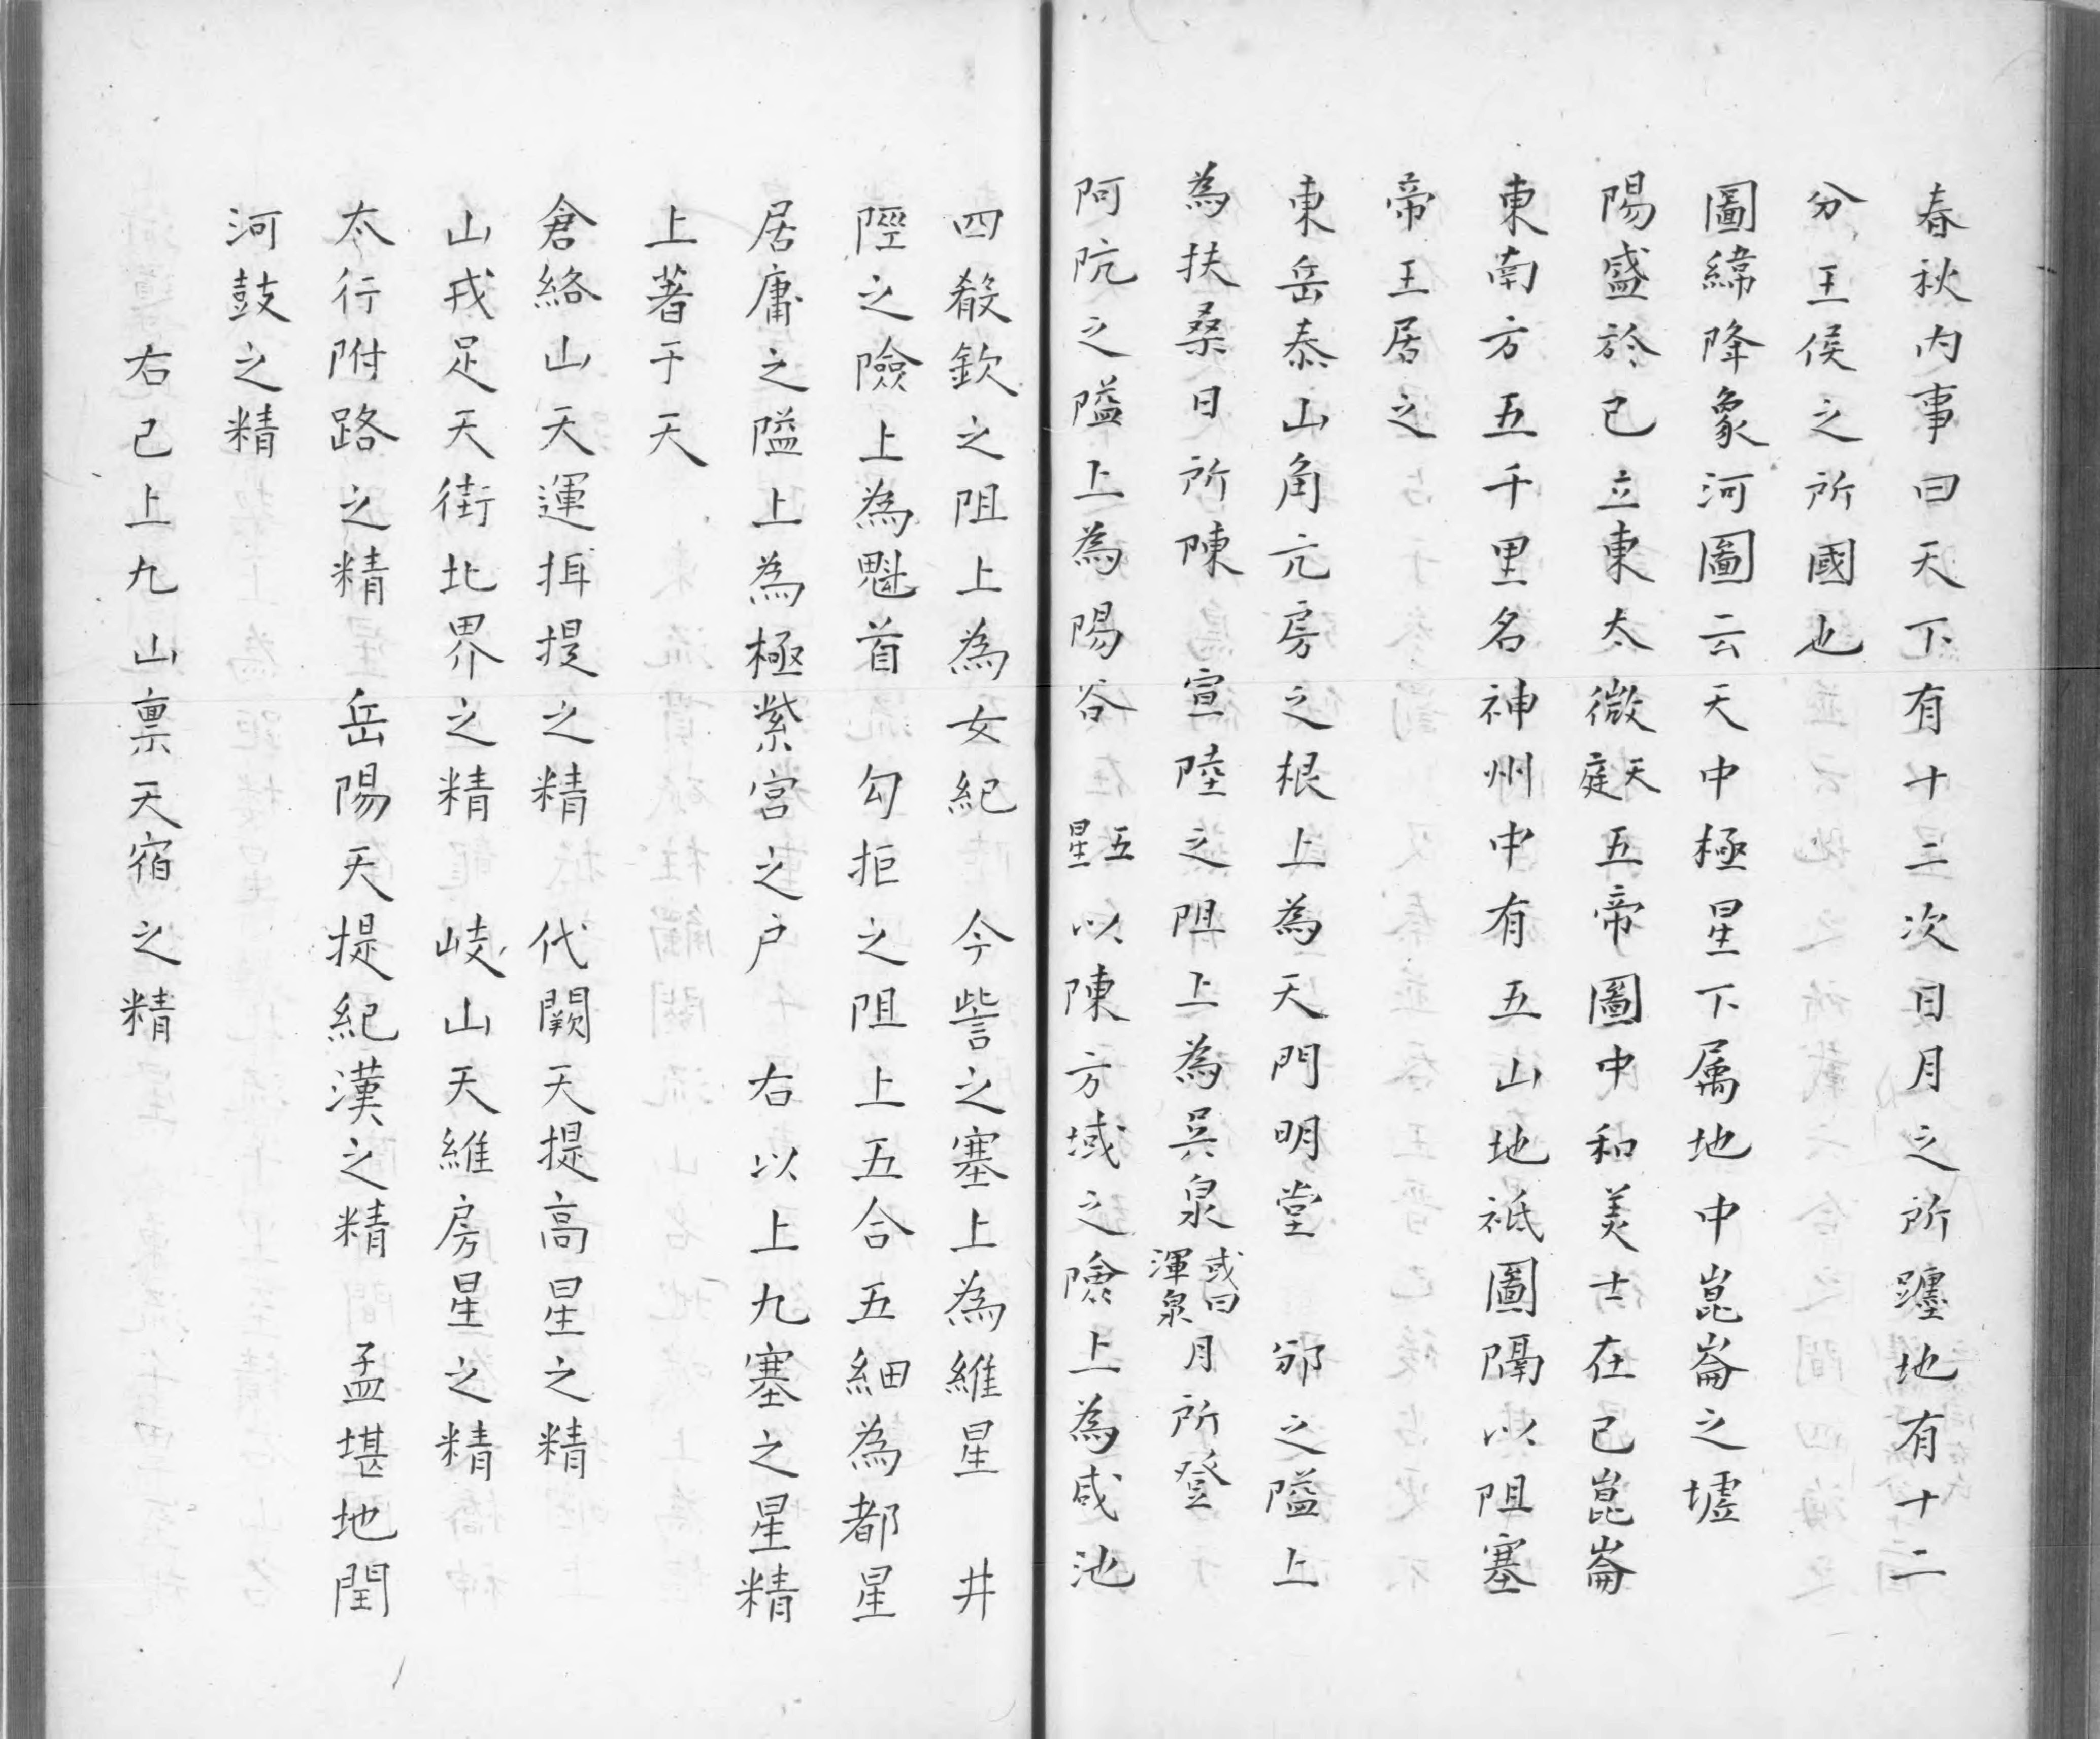 春秋内事曰天下有十二次日月之所躔地有十二
分王侯之所國也
圖緯降象河圖云天中極星下属地中崑崙之墟
陽盛於已立東太微天庭五帝圖中和美士在已崑崙
東南方五千里名神州中有五山地祇圖隔以阻塞
帝王居之
東岳泰山角亢房之根上為天門明堂　邠之隘上
為扶桑日所陳　宣陸之阻上為吳泉或曰渾泉月所登
阿阬之隘上為陽谷　五星以陳方域之險上為咸池
四殽欽之阻上為女紀　今訾之塞上為維星　井
陘之險上為魁首　勾拒之阻上五合五細為都星
居庸之隘上為極紫宮之户　右以上九塞之星精
上著于天
倉絡山天運揖提之精　代闕天提高星之精
山戎足天街北界之精　岐山天維房星之精
太行附路之精　岳陽天提紀漢之精　孟堪地閏
河鼓之精
右已上九山禀天宿之精